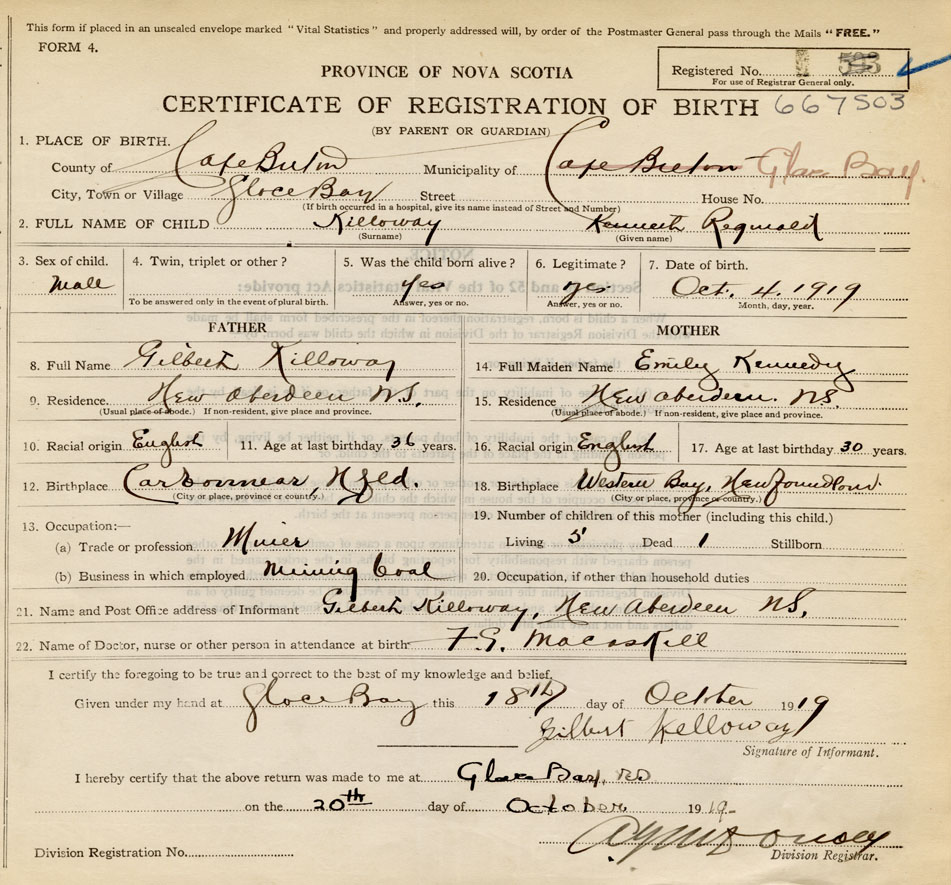 This form if placed in an unsealed envelope marked "Vital Statistics" and properly addressed will, by order of the Postmaster General pass through the Mails "FREE."
FORM 4.
PROVINCE OF NOVA SCOTIA
Registered No.
For use of Registrar General only.
CERTIFICATE OF REGISTRATION OF BIRTH 667503
(BY PARENT OR GUARDIAN)
1. PLACE OF BIRTH.
County of Cape Breton Municipality of Cape Breton Glace Bay.
City, Town or Village Gloce Bay Street House No.
(If birth occurred in a hospital, give its name instead of Street and Number)
2. FULL NAME OF CHILD Killoway Kenneth Reginald
(Surname) (Given name)
3. Sex of child. 4. Twin, triplet or other? 5. Was the child born alive? 6. Legitimate? 7. Date of birth.
Male yes yes Oct. 4. 1919
To be answered only in the event of plural birth. Answer, yes or no. Answer, yes or no. Month, day, year.
FATHER MOTHER
8. Full Name Gilbert Killoway 14. Full Maiden Name Emily Kennedy
9. Residence New Aberdeen N.S. 15. Residence New Aberdeen. N.S.
(Usual place of abode.) If non-resident, give place and province. (Usual place of abode.) If non-resident, give place and province.
10. Racial origin English 11. Age at last birthday 36 years. 16. Racial origin English 17. Age at last birthday 30 years.
12. Birthplace Carbonnear, Nfld. 18. Birthplace Western Bay, Newfoundland.
(City or place, province or country.) (City or place, province or country.)
19. Number of children of this mother (including this child.)
13. Occupation:—
(a) Trade or profession Miner Living 5 Dead 1 Stillborn
(b) Business in which employed Mining Coal 20. Occupation, if other than household duties
21. Name and Post Office address of Informant Gilbert Killoway, New Aberdeen N.S.
22. Name of Doctor, nurse or other person in attendance at birth MacAskill
I certify the foregoing to be true and correct to the best of my knowledge and belief.
Given under my hand at Gloce Bay this 18th day of October 1919
Gilbert Kelloway
Signature of Informant.
I hereby certify that the above return was made to me at Glace Bay,
on the 20th day of October 1919
Division Registration No. Division Registrar.